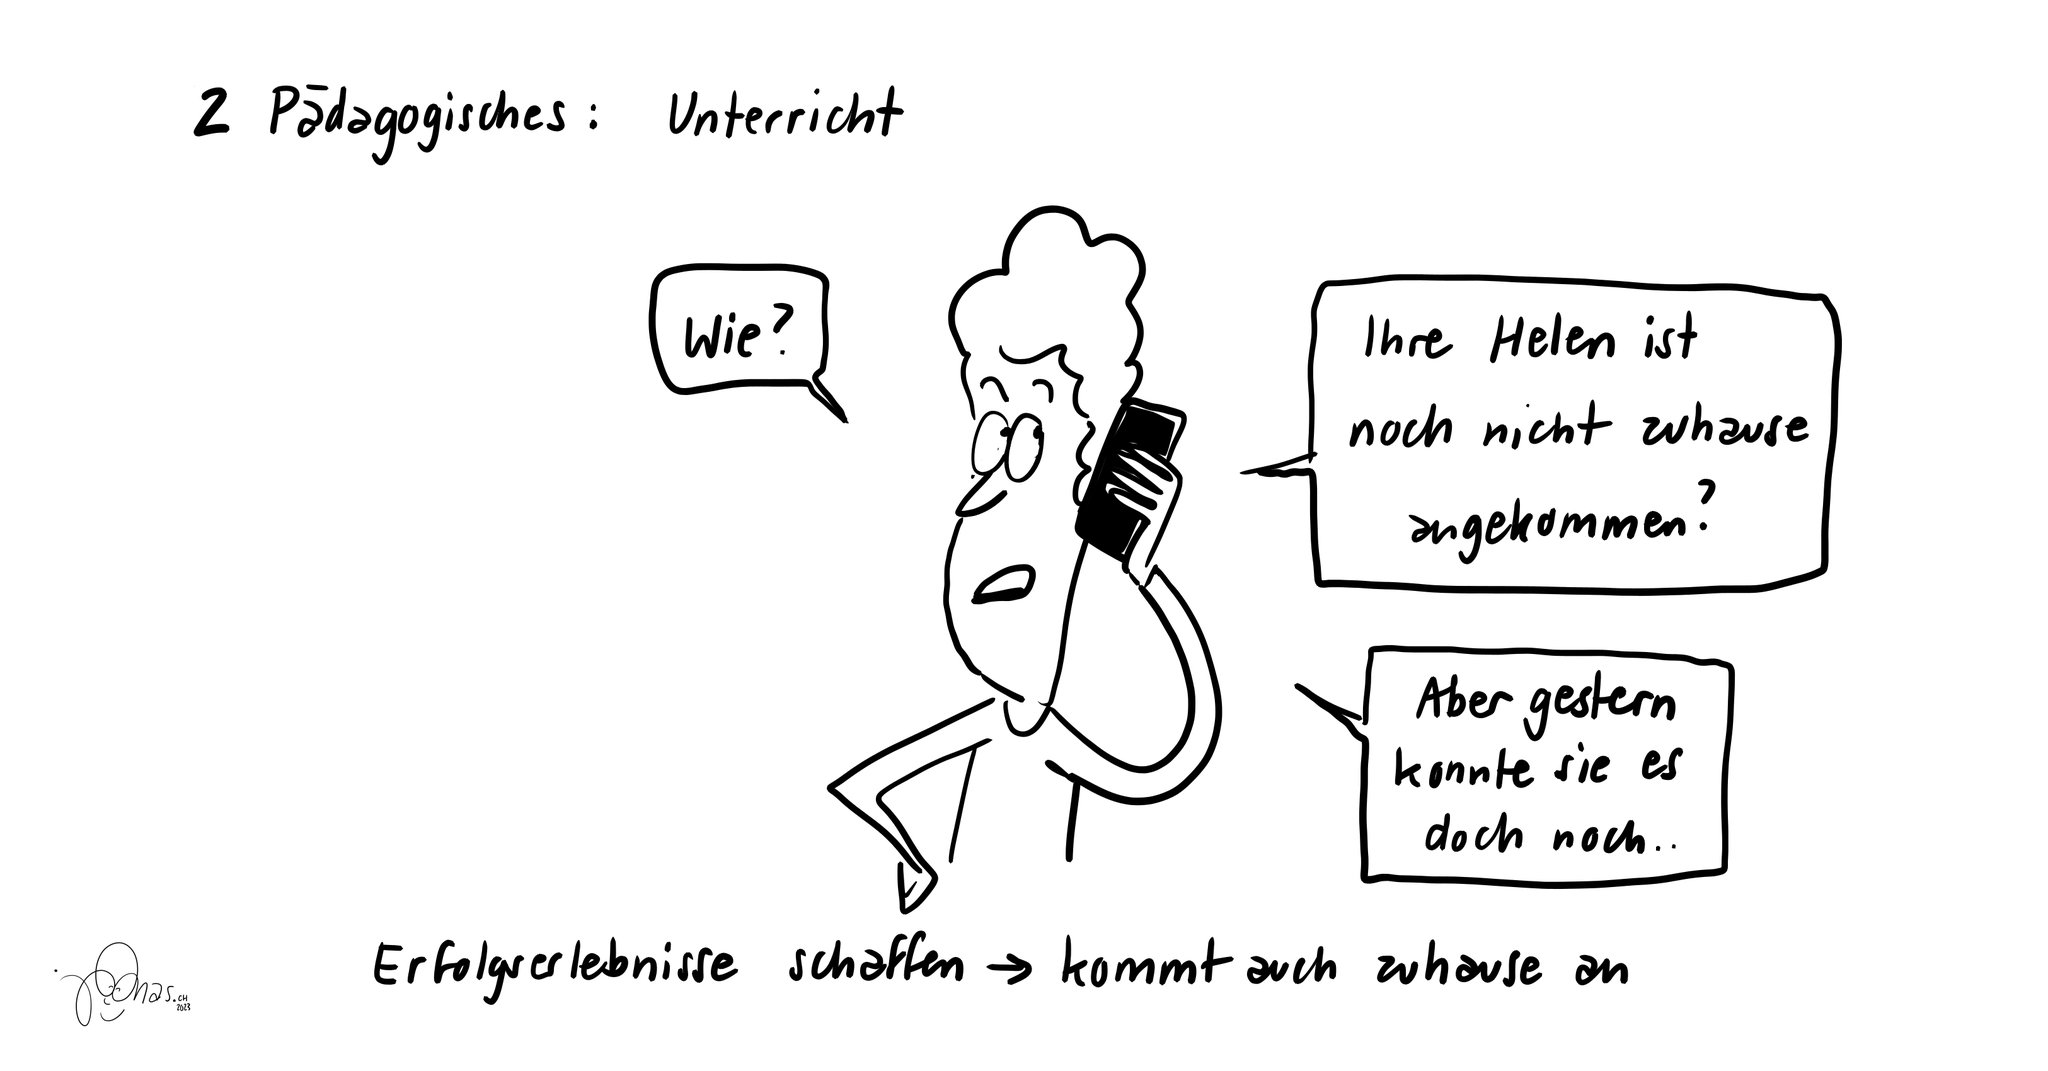 2 Pädagogisches: Unterricht
Wie?
Ihre Helen ist
noch nicht zuhause
angekommen?
Aber gestern
konnte sie es
doch noch..
Erfolgserlebnisse schaffen → kommt auch zuhause an
.CH
2023